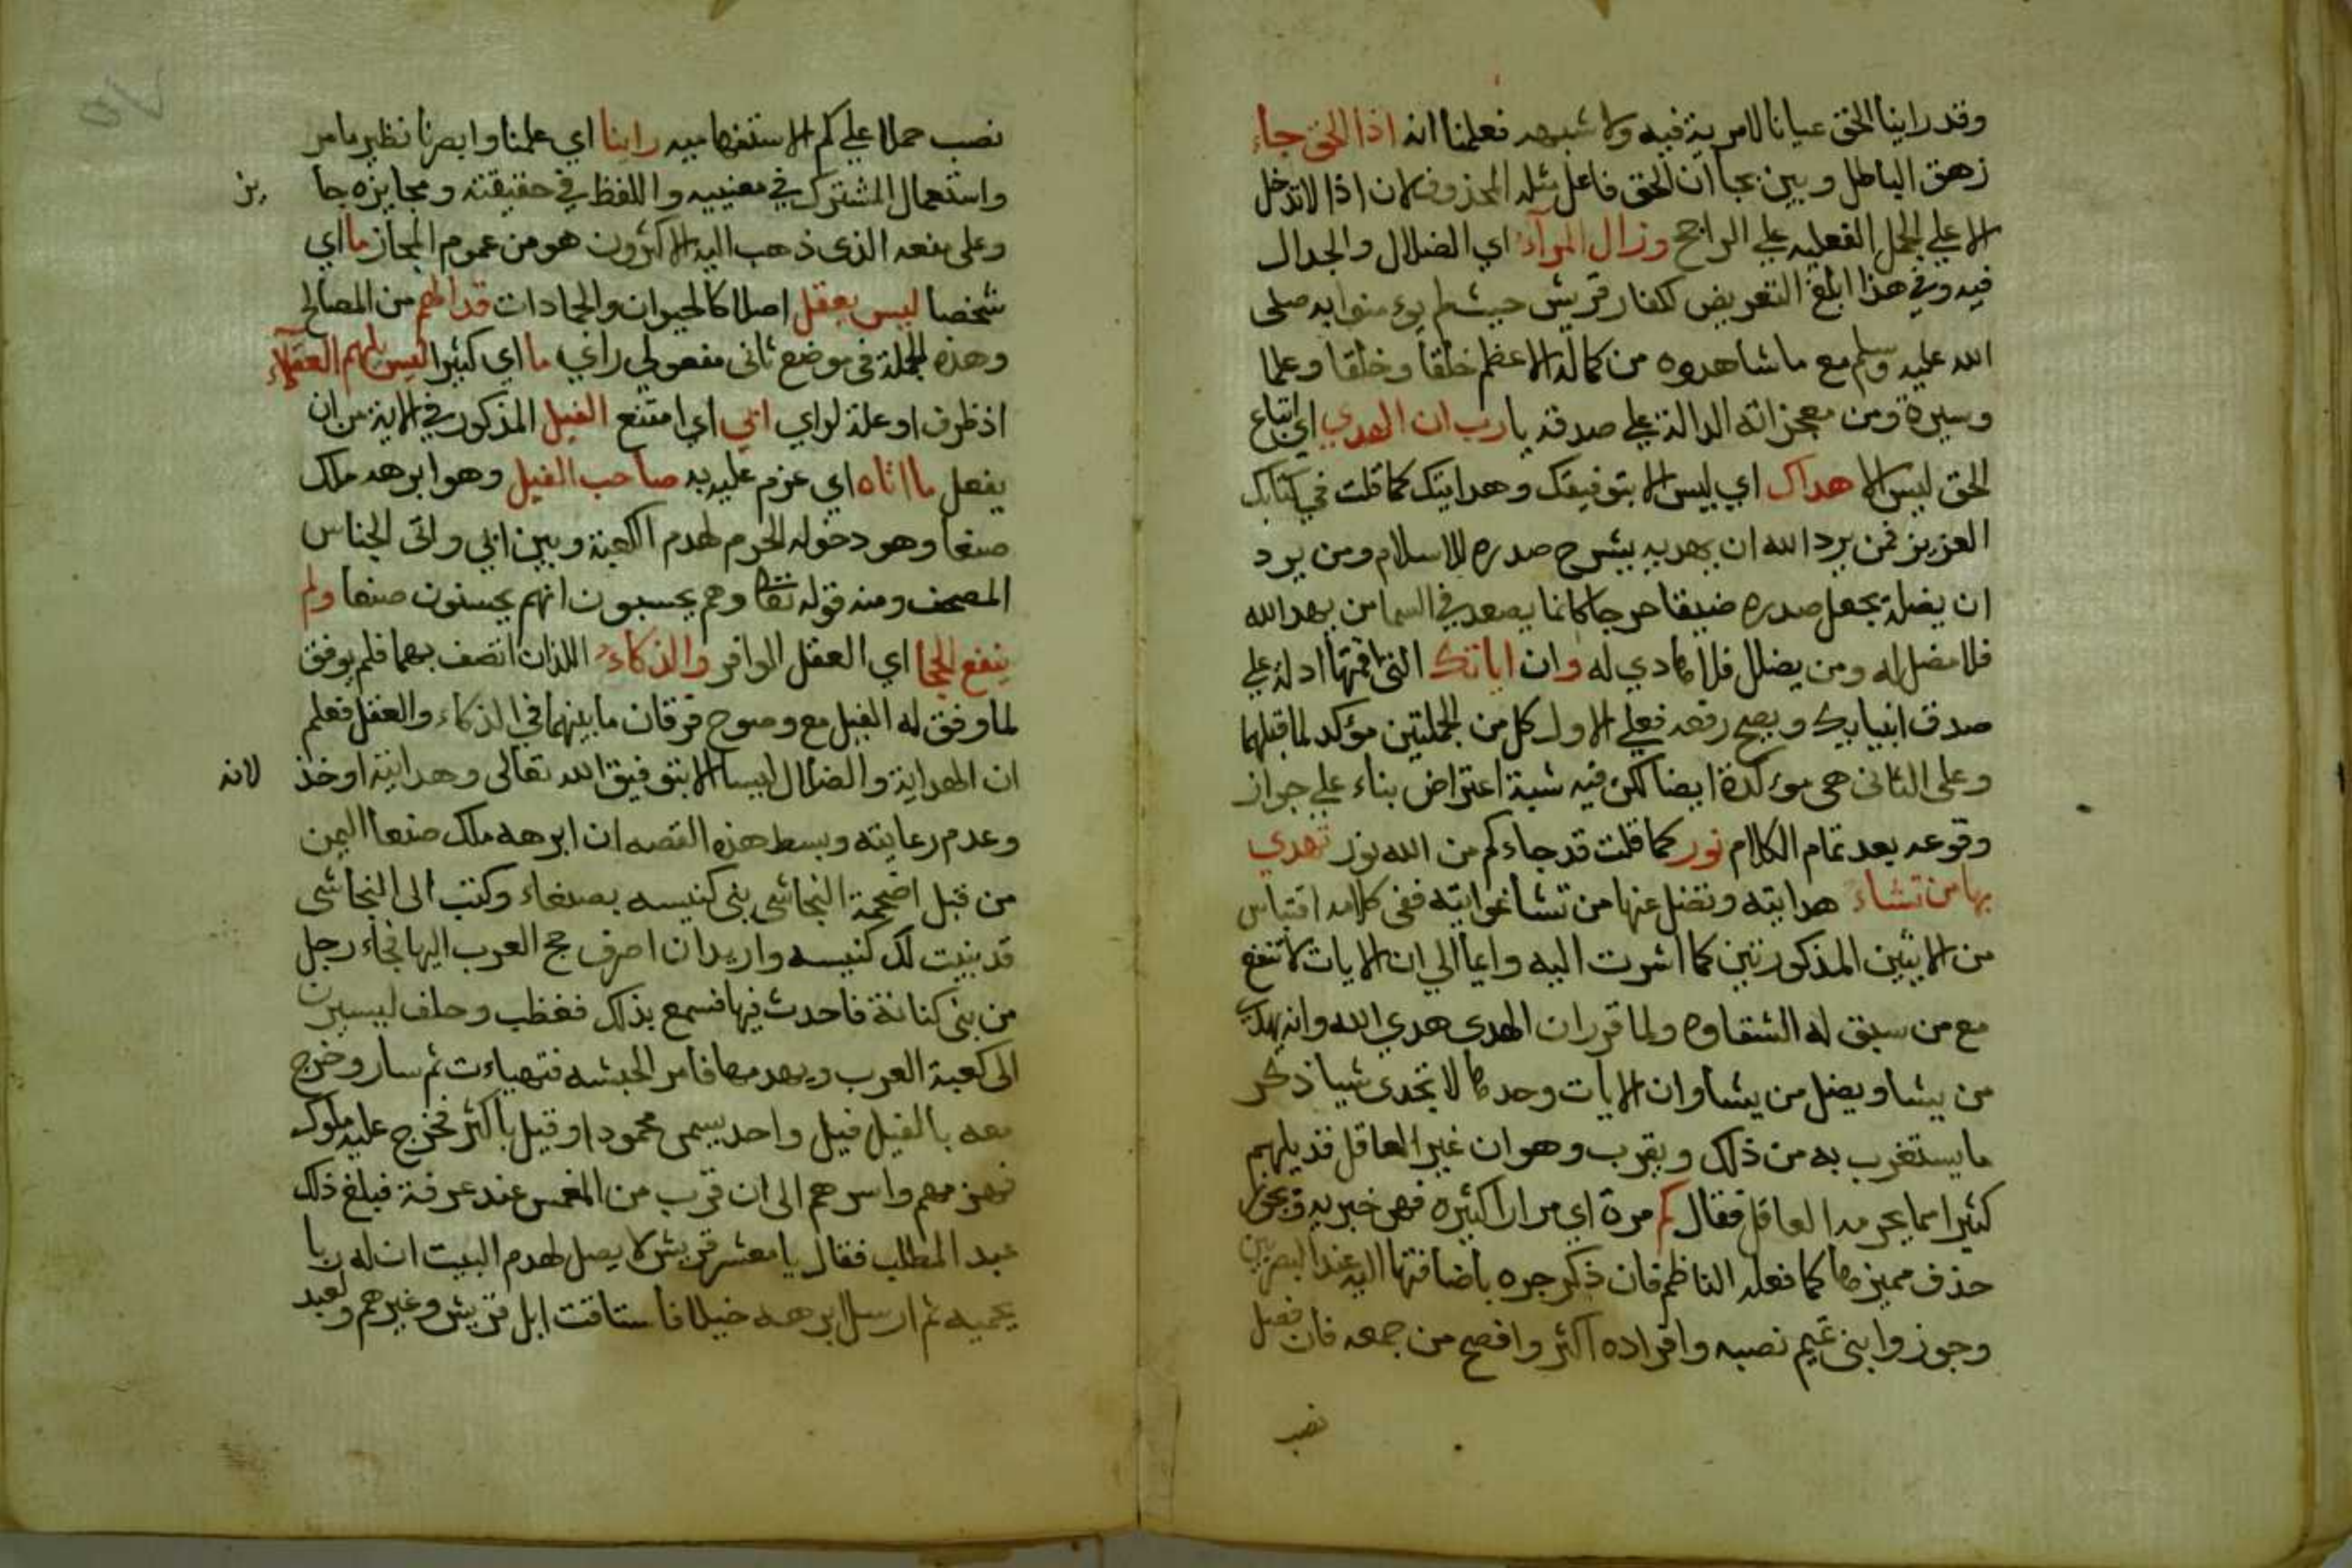 وقد راينا الحق عيانا لا مرية فيه ولا شبهه فعلمنا انه اذا الحق جاء
زهق الباطل وبين بجا ان الحق فاعل مثله المحذوف لان اذا لا تدخل
الا على الجمل الفعليه على الراجح وزال المرآء اي الضلال والجدال
فيه وفي هذا ابلغ التعريض لكفار قريش حيث لم يومنوا به صلى
الله عليه وسلم مع ما شاهدوه من كماله الاعظم خلقا وخلقا وعلما
وسيرة ومن معجزاته الدالة على صدقه يا رب ان الهدي اي اتباع
الحق ليس الا هداك اي ليس الا بتوفيقك وهدايتك كما قلت في كتابك
العزيز فمن يرد الله ان يهديه يشرح صدره للاسلام ومن يرد
ان يضله يجعل صدره ضيقا حرجا كانما يصعد في السما من يهد الله
فلا مضل له ومن يضلل فلا هادي له وان اياتك التي اقمتها ادلة على
صدق انبيايك ويصح رفعه فعلى الاول كل من الجملتين مؤكد لما قبلهما
وعلى الثاني هي موكدة ايضا لكن فيه شبة اعتراض بناء على جواز
وقوعه بعد تمام الكلام نور كما قلت قد جاءكم من الله نور تهدي
بها من تشاء هدايته وتضل عنها من تشا غوايته ففي كلامه اقتباس
من الايتين المذكورتين كما اشرت اليه وايما الى ان الايات لا تنفع
مع من سبق له الشقاوه ولما قرر ان الهدى هدي الله وانه يهدي
من يشا ويضل من يشا وان الايات وحدها لا تجدى شيا ذكر
ما يستغرب به من ذلك ويقرب وهو ان غير العاقل قد يلهم
كثيرا مما يحرمه العاقل فقال كم مرة اي مرارا كثيره فهى خبريه ويجوز
حذف مميزها كما فعله الناظم فان ذكر جره باضافتها اليه عند البصريين
وجوزوا بنى تميم نصبه وافراده اكثر وافصح من جمعه فان فصل
نصب
نصب حملا على كم الاستفهاميه راينا اي علمنا وابصرنا نظير ما مر
واستعمال المشترك في معنييه واللفظ في حقيقته ومجازه جا يز
وعلى منعه الذى ذهب اليه الاكثرون هو من عموم المجاز ما اي
شخصا ليس يعقل اصلا كالحيوان والجمادات قد الهم من المصالح
وهذه الجملة فى موضع ثانى مفعولي راي ما اي كثيرا ليس يلهم العقلاء
اذ ظرف او علة لراي ابي اي امتنع الفيل المذكور في الاية من ان
يفعل ما اتاه اي عزم عليه به صاحب الفيل وهو ابرهه ملك
صنعا وهو دخوله الحرم لهدم الكعبة وبين ابي واتى الجناس
المصحف ومنه قوله تعا وهم يحسبون انهم يحسنون صنعا ولم
ينفع الحجا اي العقل الوافر والذكاء اللذان اتصف بهما فلم يوفق
لما وفق له الفيل مع وضوح فرقان ما بينهما في الذكاء والعقل فعلم
ان الهداية والضلال ليسا الا بتوفيق الله تعالى وهدايته او خذ لانه
وعدم رعايته وبسط هذه القصه ان ابرهه ملك صنعا اليمن
من قبل اضحمة النجاشى بنى كنيسه بصنعاء وكتب الى النجاشى
قد بنيت لك كنيسه واريد ان اصرف حج العرب اليها فجاء رجل
من بنى كنانة فاحدث فيها فسمع بذلك فغظب وحلف ليسيرن
الى كعبة العرب ويهدمها فامر الحبشه فتهياءت ثم سار وخرج
معه بالفيل فيل واحد يسمى محمود او قيل باكثر فخرج عليه ملوك
فهزمهم واسرهم الى ان قرب من المغمس عند عرفة فبلغ ذلك
عبد المطلب فقال يا معشر قريش لا يصل لهدم البيت ان له ربا
يحميه ثم ارسل ابرهه خيلا فاستاقت ابل قريش وغيرهم ولعبد